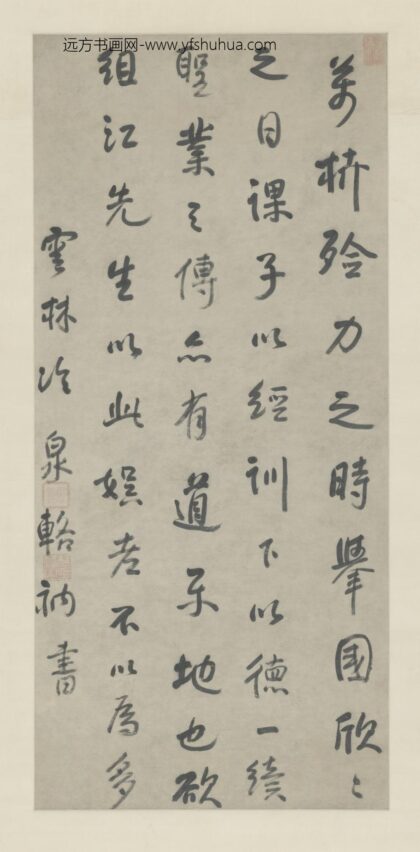 远方书画网-www.yfshuhua.com
萬橋殮力之時舉國欣〻
之日課子以經訓下以德一續
聖業之傳亦有道樂地也欲
組江先生以此娱老不以為多
雲林冷泉輅衲書